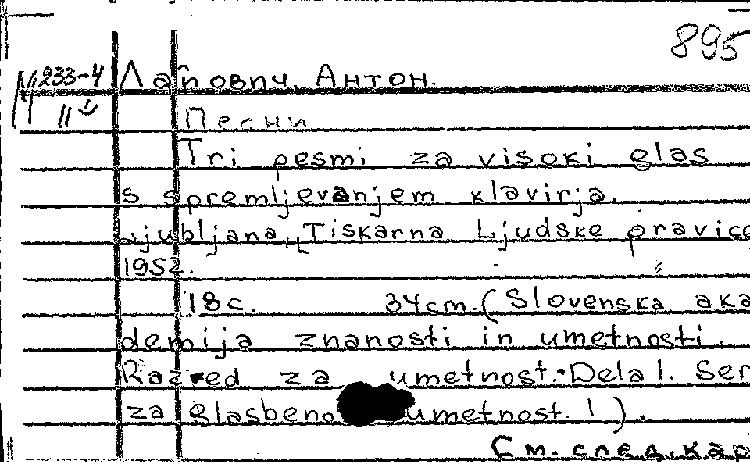 895
233-4 Лапович, Антон.
II
Песни
Tri pesmi za visoki glas
s spremljevanjem klavirja.
Ljubljana, Tiskarna Ljudske pravice
1952.
18с. 34cm. (Slovenska aka
demija znanosti in umetnosti.
Razred za umetnost. Dela 1. Ser
za glasbeno umetnost. 1).
См. след. кар